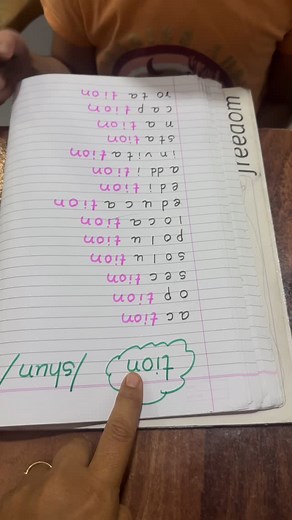 tion /shun/
ac tion
op tion
sec tion
solu tion
polu tion
loca tion
educa tion
edi tion
addi tion
invita tion
sta tion
na tion
cap tion
rota tion
freedom